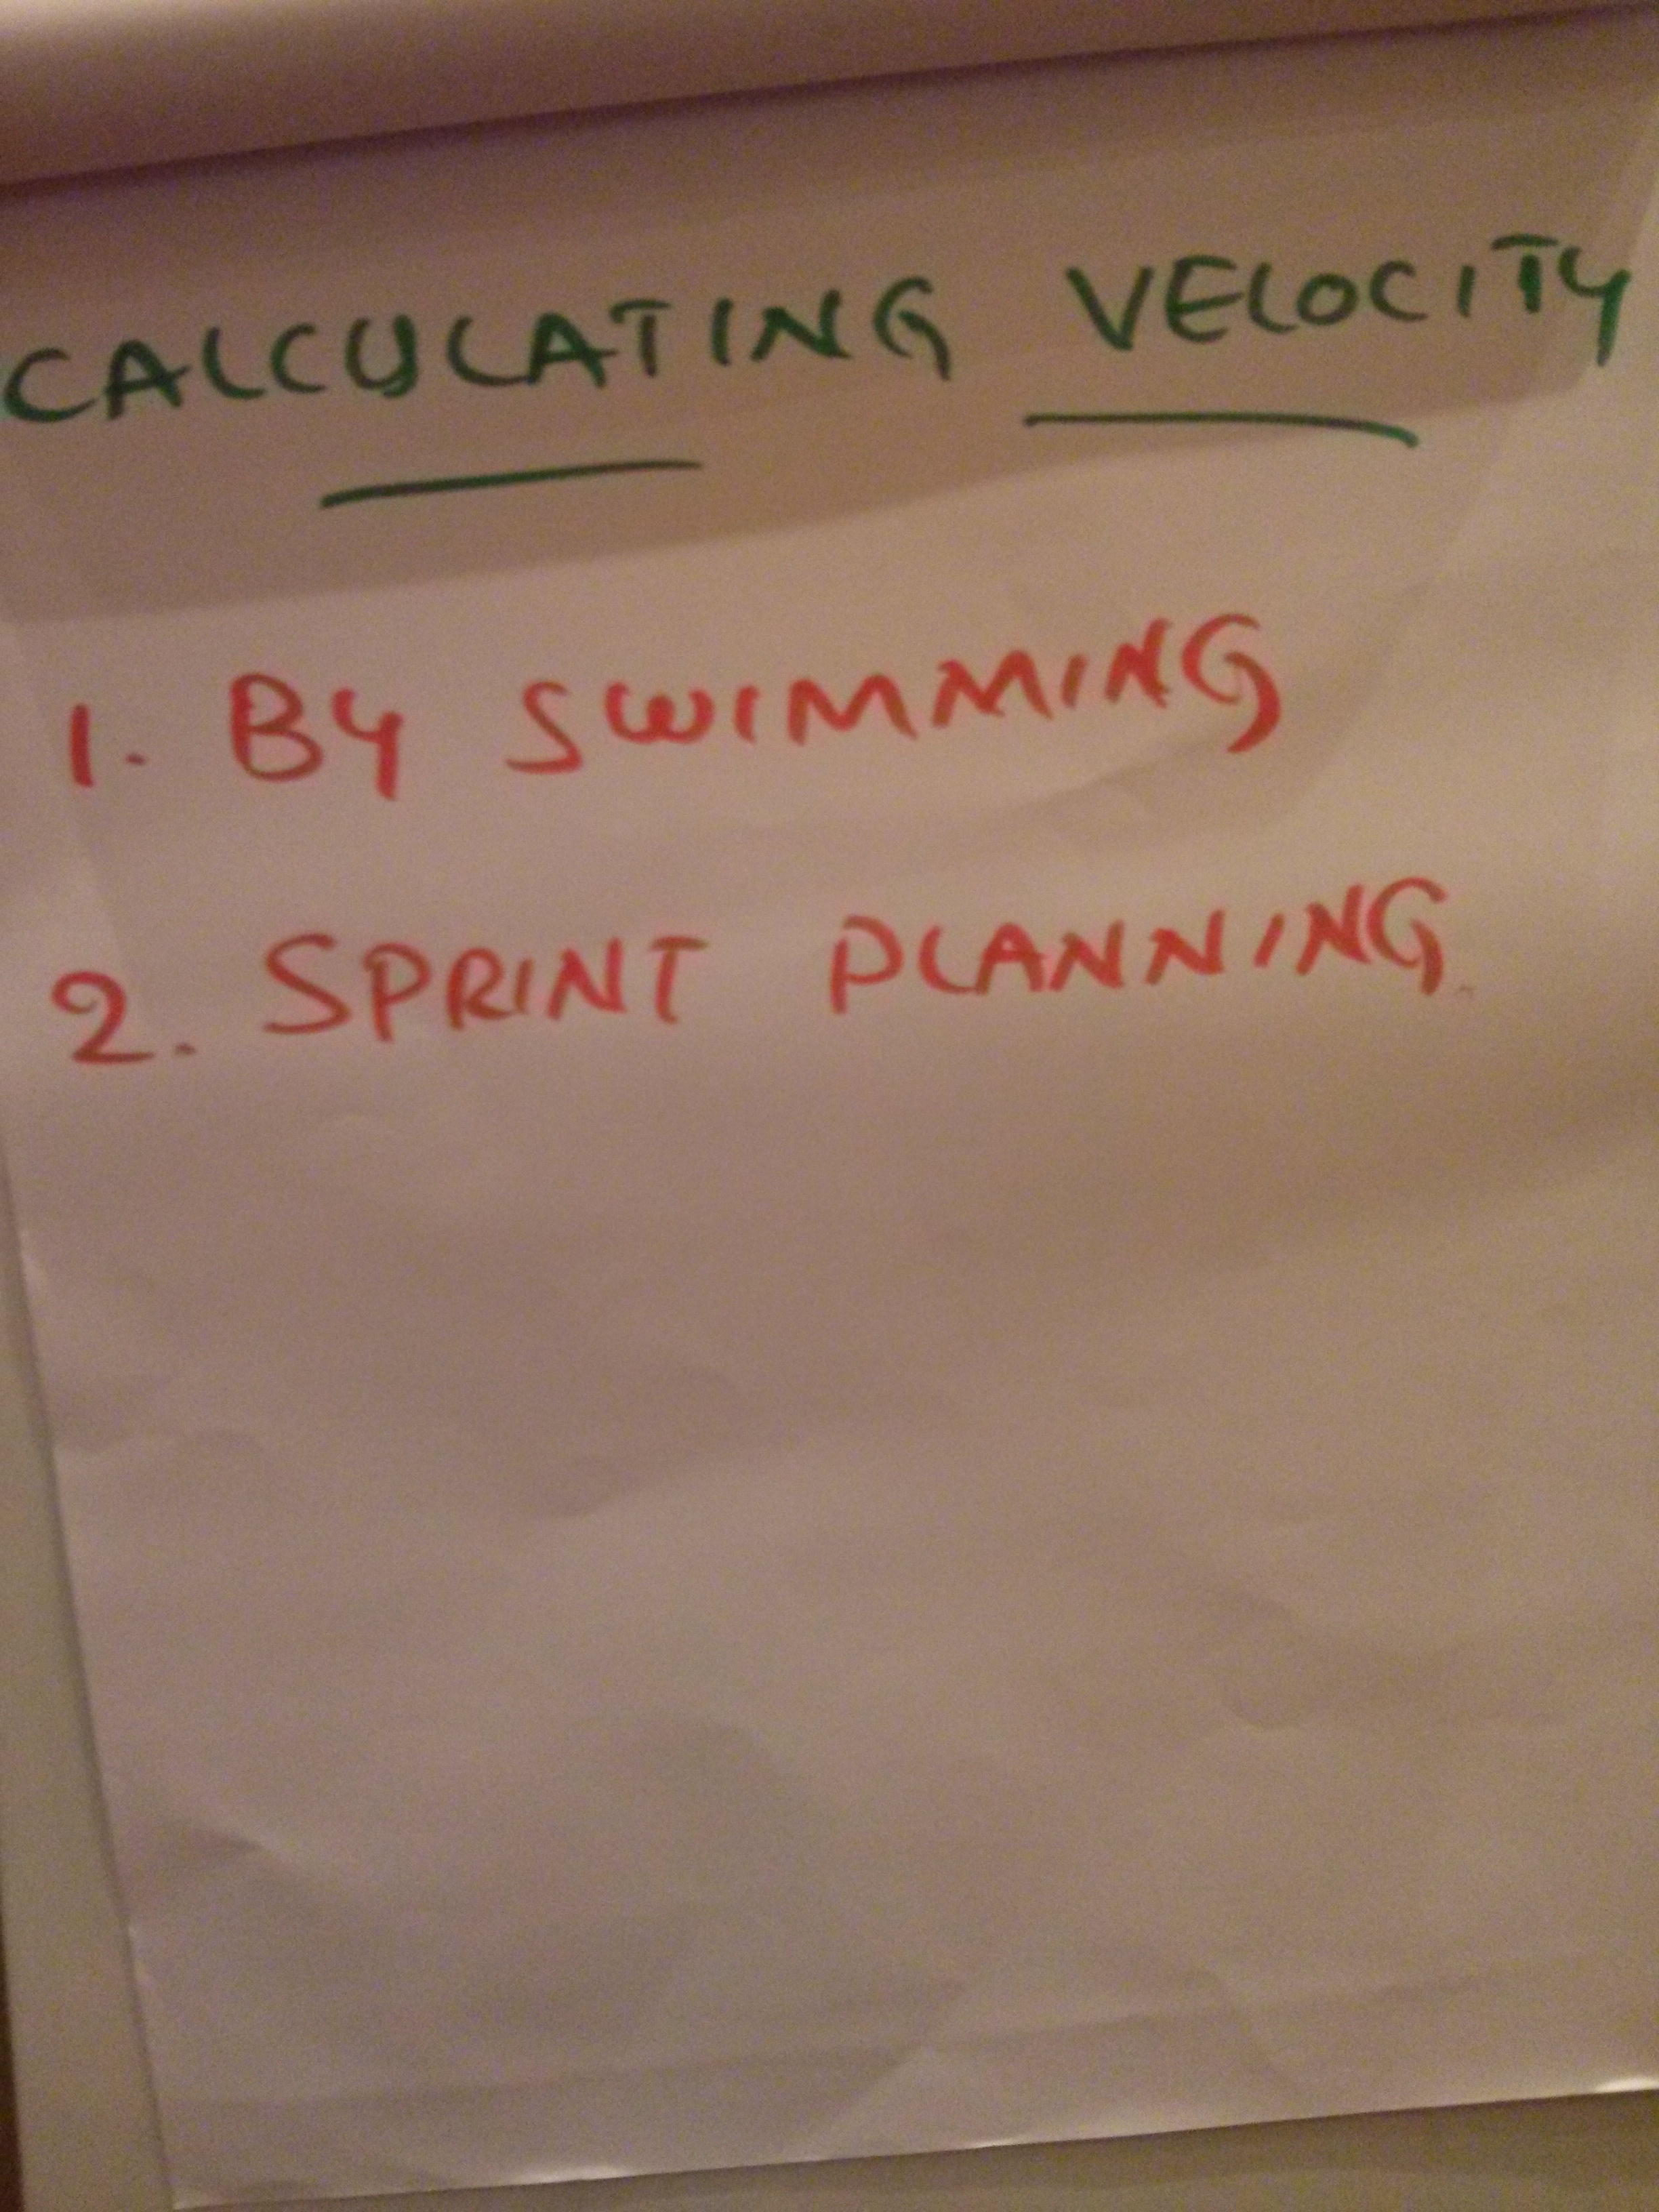 CALCULATING VELOCITY
1. BY SWIMMING
2. SPRINT PLANNING.